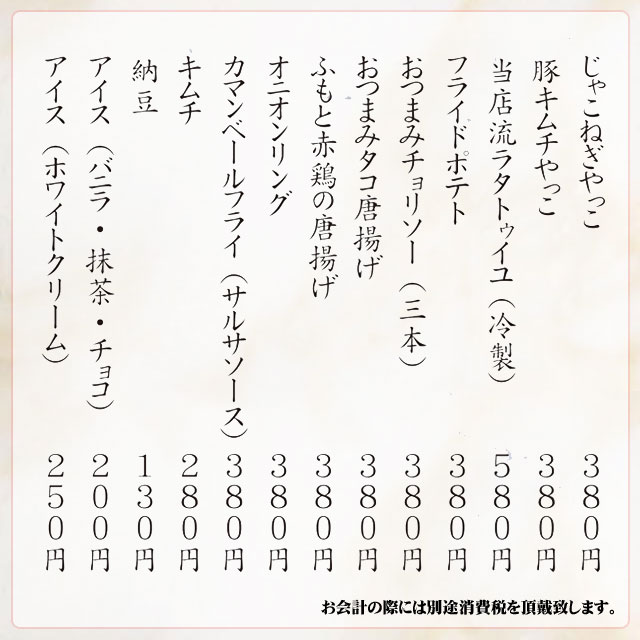 じゃこねぎやっこ 380円
豚キムチやっこ 380円
当店流ラタトゥイユ(冷製) 580円
フライドポテト 380円
おつまみチョリソー(三本) 380円
おつまみタコ唐揚げ 380円
ふもと赤鶏の唐揚げ 380円
オニオンリング 380円
カマンベールフライ(サルサソース) 380円
キムチ 280円
納豆 130円
アイス(バニラ・抹茶・チョコ) 200円
アイス(ホワイトクリーム) 250円
お会計の際には別途消費税を頂戴致します。